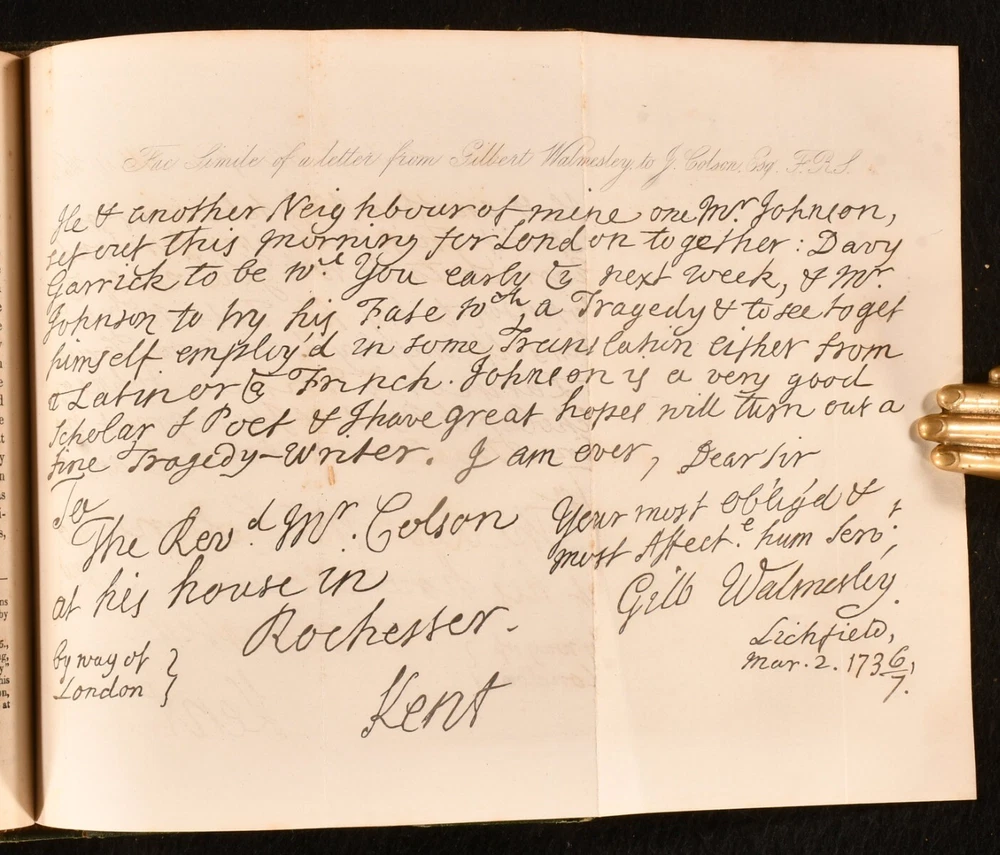 Fac Simile of a letter from Gilbert Walmesley, to J. Colson, Esq. F.R.S.
He & another Neighbour of mine one Mr Johnson,
set out this morning for London together: Davy
Garrick to be wth You early next week, & Mr
Johnson to try his Fate wth a Tragedy & to see to get
himself employ'd in some Translation either from
a Latin or French. Johnson is a very good
Scholar & Poet & I have great hopes will turn out a
fine Tragedy-Writer. I am ever, Dear Sir
Your most oblig'd &
most Affect.e hum Servt,
Gilb Walmesley.
Lichfield,
Mar. 2. 1736/7.
To
The Revd. Mr. Colson
at his house in
Rochester.
by way of
London }
Kent